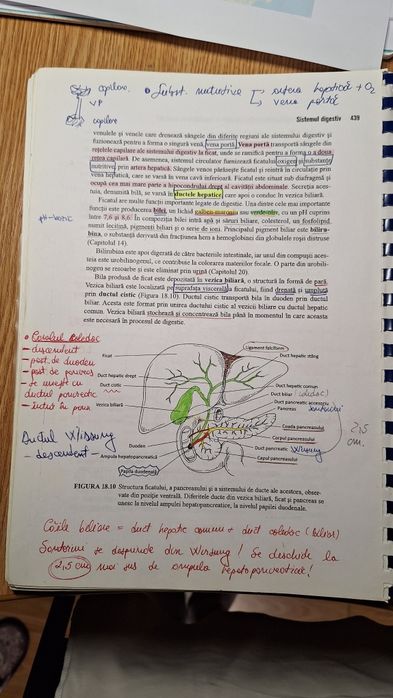 capilare.
VP
capilare
• Subst. nutritive
artera hepatică + O2
vena portă
Sistemul digestiv 439
venulele și venele care drenează sângele din diferite regiuni ale sistemului digestiv și
fuzionează pentru a forma o singură venă, vena portă. Vena portă transportă sângele din
rețelele capilare ale sistemului digestiv la ficat, unde se ramifică pentru a forma o a doua
rețea capilară. De asemenea, sistemul circulator furnizează ficatului oxigen și substanțe
nutritive prin artera hepatică. Sângele venos părăsește ficatul și reintră în circulație prin
vena hepatică, care se varsă în vena cavă inferioară. Ficatul este situat sub diafragmă și
ocupă cea mai mare parte a hipocondrului drept al cavității abdominale. Secreția aces-
tuia, denumită bilă, se varsă în ductele hepatice, care apoi o conduc în vezica biliară.
Ficatul are multe funcții importante legate de digestie. Una dintre cele mai importante
funcții este producerea bilei, un lichid galben-maroniu sau verde-oliv, cu un pH cuprins
între 7,6 și 8,6. În compoziția bilei intră apă și săruri biliare, colesterol, un fosfolipid
numit lecitină, pigmenți biliari și o serie de ioni. Principalul pigment biliar este biliru-
bina, o substanță derivată din fracțiunea hem a hemoglobinei din globulele roșii distruse
(Capitolul 14).
Bilirubina este apoi digestată de către bacteriile intestinale, iar unul din compușii aces-
teia este urobilinogenul, ce contribuie la colorarea materiilor fecale. O parte din urobili-
nogen se resoarbe și este eliminat prin urină (Capitolul 20).
Bila produsă de ficat este depozitată în vezica biliară, o structură în formă de pară.
Vezica biliară este localizată pe suprafața viscerală a ficatului, fiind drenată și umplută
prin ductul cistic (Figura 18.10). Ductul cistic transportă bila în duoden prin ductul
biliar. Acesta este format prin unirea ductului cistic al vezicii biliare cu ductul hepatic
comun. Vezica biliară stochează și concentrează bila până în momentul în care aceasta
este necesară în procesul de digestie.
• Canalul coledoc
- descendent
- post. de duoden
- post. de pancreas
- se unește cu
ductul pancreatic
Ductul Wirsung
- descendent -
Ligament falciform
Ficat
Duct hepatic stâng
Duct hepatic drept
Duct hepatic comun
Duct cistic
Duct biliar (coledoc)
Duct pancreatic accesoriu
Vezică biliară
Pancreas
Santorini
Coada pancreasului
Corpul pancreasului
2,5
cm.
Duoden
Duct pancreatic Wirsung
Ampula hepatopancreatică
Capul pancreasului
Papila duodenală
FIGURA 18.10 Structura ficatului, a pancreasului și a sistemului de ducte ale acestora, obser-
vate din poziție ventrală. Diferitele ducte din vezica biliară, ficat și pancreas se
unesc la nivelul ampulei hepatopancreatice, la nivelul papilei duodenale.
Căile biliare = duct hepatic comun + duct coledoc (biliar)
Santorini se desprinde din Wirsung! Se deschide la
2,5 cm mai sus de ampula hepatopancreatică!